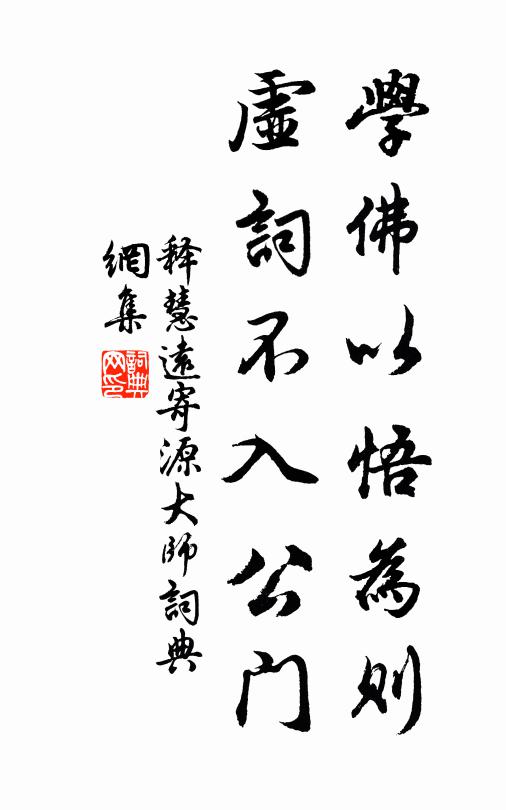 學佛以悟為則
虛詞不入公門
释慧遠寄源大師詞典
網集
詞典
网印